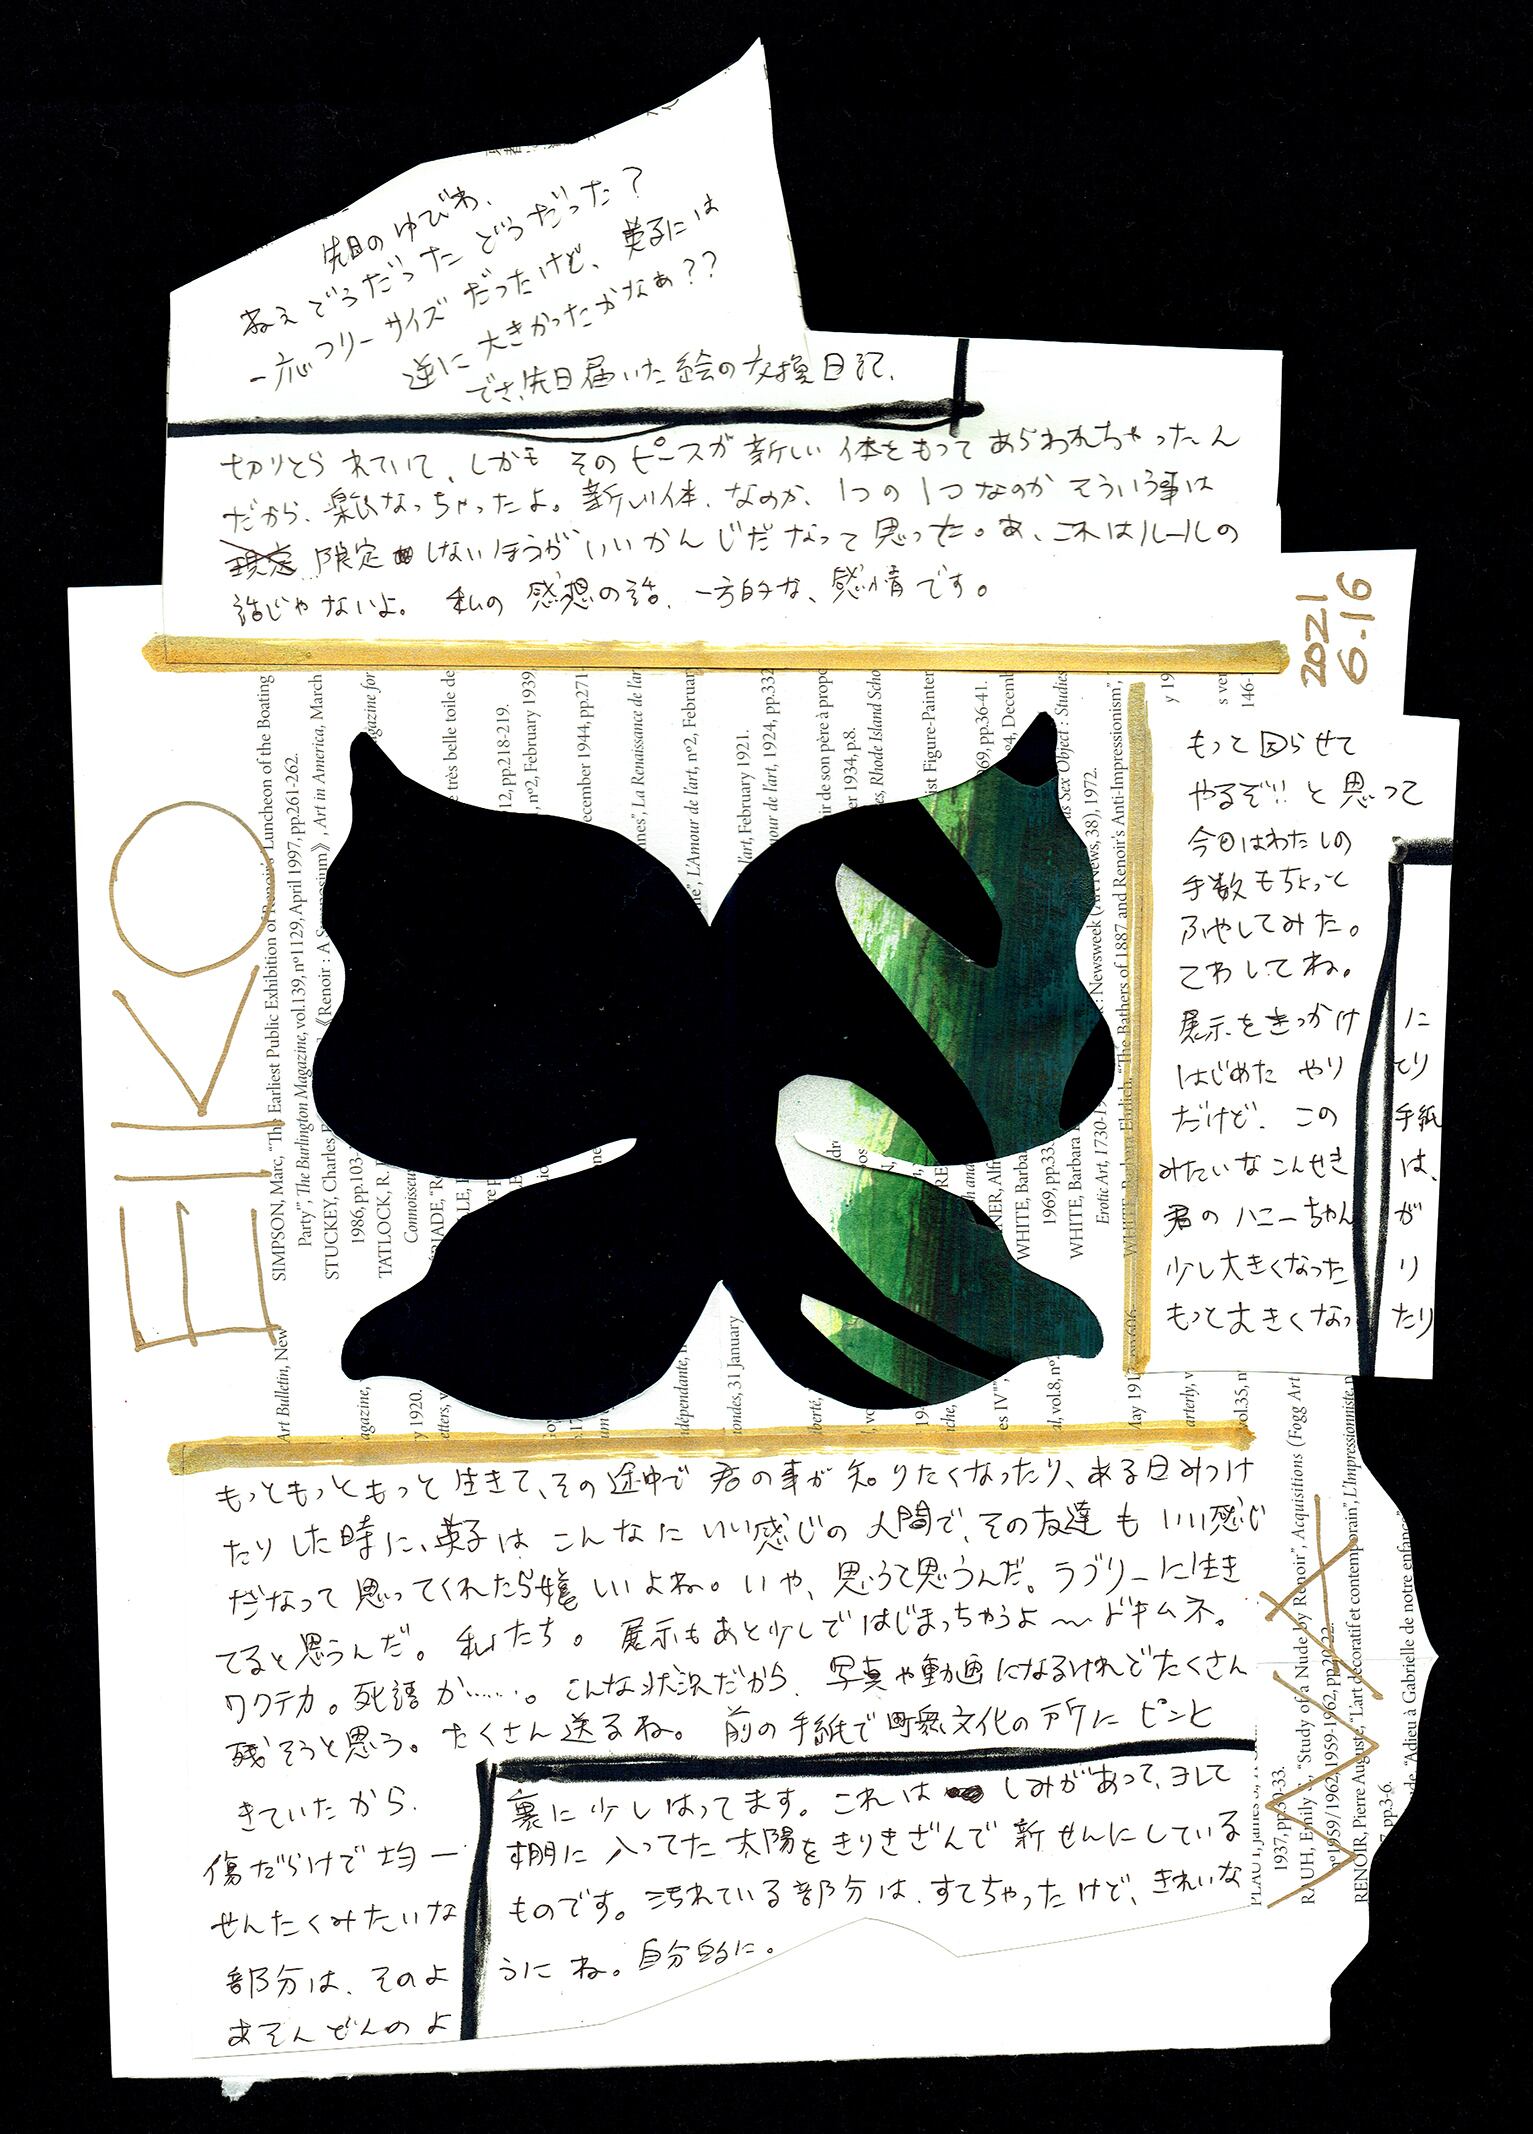 先日のゆびわ、
ねえどうだった どうだった？
一応フリーサイズだったけど、英子には
逆に大きかったかなぁ？？
でさ、先日届いた絵の交換日記、
切りとられていて、しかも そのピースが新しい体をもってあらわれちゃったん
だから、楽しくなっちゃったよ。新しい体、なのか、1つの1つなのか そういう事は
限定 しないほうがいいかんじだなって思った。あ、これはルールの
話じゃないよ。 私の感想の話、一方的な、感情です。
2021
6.16
もっと困らせて
やるぞ!! と思って
今日はわたしの
手数もちょっと
ふやしてみた。
てわしてね。
展示をきっかけ に
はじめた やり とり
だけど、この 手紙
みたいなこんせき は、
君のハニーちゃん が
少し大きくなった り
もっと大きくなっ たり
EIKO
もっともっともっと生きて、その途中で 君の事が知りたくなったり、ある日みつけ
たりした時に、英子は こんなにいい感じの人間で、その友達も いい感じ
だなって思ってくれたら嬉しいよね。いや、思うと思うんだ。ラブリーに生き
てると思うんだ。私たち。展示もあと少しではじまっちゃうよ〜ドキムネ。
ワクテカ。死語か……。こんな状況だから、写真や動画になるけれどたくさん
残そうと思う。たくさん送るね。 前の手紙で町衆文化の にピンと
きていたから、
傷だらけで均一
せんたくみたいな
部分は、そのよ
あそんどんのよ
裏に少しはってます。これは しみがあって、ヨレて
棚に入ってた太陽をきりきざんで新せんにしている
ものです。汚れている部分は、すてちゃったけど、きれいな
うにね。自分的に。
SIMPSON, Marc, "The Earliest Public Exhibition of Renoir's Luncheon of the Boating
Party", The Burlington Magazine, vol.139, nº1129, April 1997, pp.261-262.
STUCKEY, Charles
《Renoir : A Symposium》, Art in America, March
1986, pp.103-
TATLOCK, R.
Connoisseur
Art Bulletin, New
agazine for
très belle toile de
12, pp.218-219.
, nº2, February 1939,
ecember 1944, pp.271-
La Renaissance de l'ar
L'Amour de l'art, nº2, Februar
l'art, February 1921.
mour de l'art, 1924, pp.332
ir de son père à propo
er 1934, p.8.
es, Rhode Island Scho
ist Figure-Painter
969, pp.36-41.
as Sex Object : Studies
WHITE, Barba
1969, pp.33
WHITE, Barbara
Newsweek (Art News, 38), 1972.
Erotic Art, 1730-19
WHITE, Barbara Ehrlich, "The Bathers of 1887 and Renoir's Anti-Impressionism",
y 1920.
dépendante,
ondes, 31 January
1937, pp.30-33.
RAUH, Emily S., "Study of a Nude by Renoir", Acquisitions (Fogg Art
nº1959/1962, 1959-1962, pp.20-22.
RENOIR, Pierre Auguste, "L'art décoratif et contemporain", L'Impressionniste, n
de, "Adieu à Gabrielle de notre enfance"
pp.3-6.